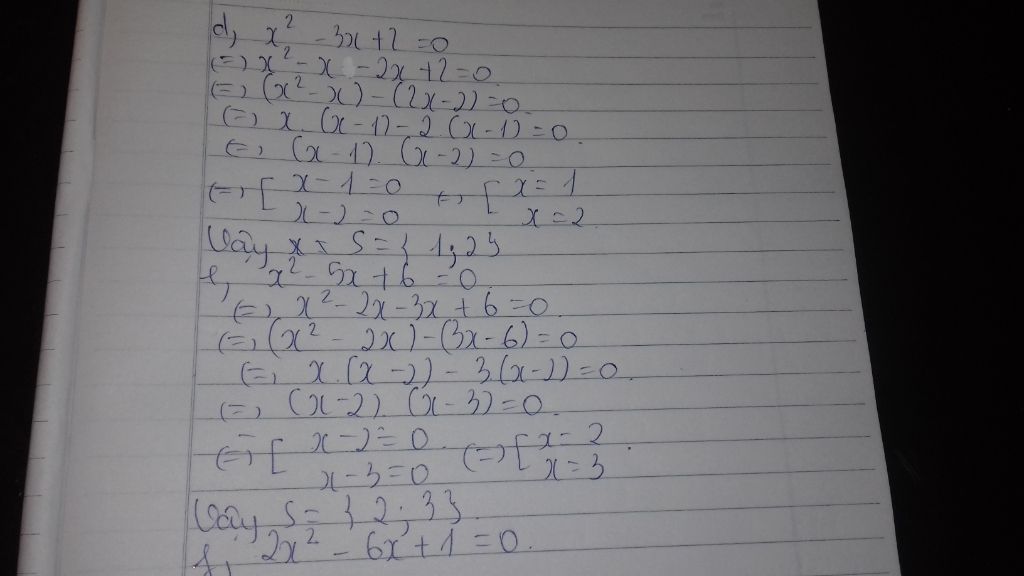 d, x² - 3x + 2 = 0
(=) x² - x - 2x + 2 = 0
(=) (x² - x) - (2x - 2) = 0
(=) x (x - 1) - 2 (x - 1) = 0
(=) (x - 1). (x - 2) = 0
(=) [ x - 1 = 0 (=) [ x = 1
x - 2 = 0 x = 2
Vậy x = S = { 1; 2 }
e, x² - 5x + 6 = 0
(=) x² - 2x - 3x + 6 = 0
(=) (x² - 2x) - (3x - 6) = 0
(=) x. (x - 2) - 3 (x - 2) = 0
(=) (x - 2). (x - 3) = 0
(=) [ x - 2 = 0 (=) [ x = 2
x - 3 = 0 x = 3
Vậy S = { 2; 3 }
f, 2x² - 6x + 1 = 0